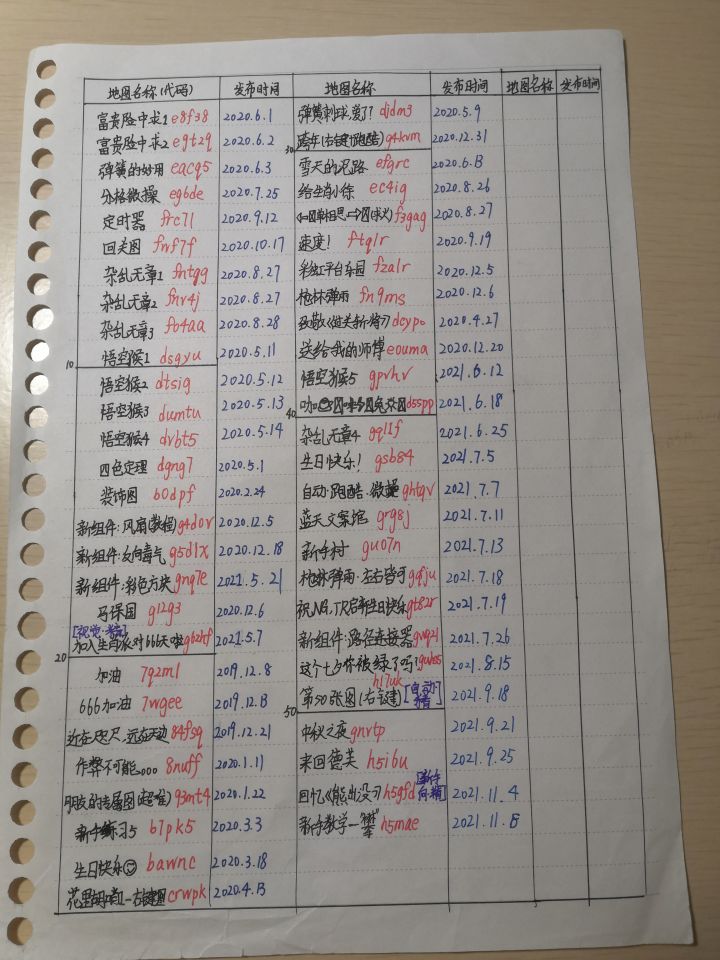 地图名称(代码) 发布时间 地图名称 发布时间 地图名称 发布时间
富贵险中求1 e8f38 2020.6.1
富贵险中求2 egtzq 2020.6.2
弹簧的妙用 eacq5 2020.6.3
分格微操 eg6de 2020.7.25
定时器 frc71 2020.9.12
回关图 fwf7f 2020.10.17
杂乱无章1 fntgg 2020.8.27
杂乱无章2 fnr4j 2020.8.27
杂乱无章3 fo4aa 2020.8.28
10 悟空猴1 dsgyu 2020.5.11
悟空猴2 dtsig 2020.5.12
悟空猴3 dumtu 2020.5.13
悟空猴4 dvbt5 2020.5.14
四色定理 dgng7 2020.5.1
装饰图 b0dpf 2020.2.24
新组件:风扇(教程) g4dov 2020.12.5
新组件:反向毒气 g5dlx 2020.12.18
新组件:彩色方块 gnq7e 2021.5.21
马保国 g12g3 2020.12.6
[视觉·考验]
20 加入生肖派对666天啦 g6zhf 2021.5.7
加油 7q2ml 2019.12.8
666加油 7wgee 2019.12.13
近在咫尺,远在天边 84fsq 2019.12.21
作弊不可能。。。 8nuff 2020.1.11
的专属图(超难) 93mt4 2020.1.22
新手练习5 b7pk5 2020.3.3
生日快乐 bawnc 2020.3.18
花里胡哨1-右键 crwpk 2020.4.13
弹簧刺球,爱了? djdm3 2020.5.9
30 跨年(右键+跑酷) g4kvm 2020.12.31
雪天的思路 efgrc 2020.6.13
给生肖小徐 ec4ig 2020.8.26
f3gag 2020.8.27
速度! ftqlr 2020.9.19
彩虹平台乐园 fzalr 2020.12.5
枪林弹雨 fn9ms 2020.12.6
致敬《过关斩将》 dcypo 2020.4.27
送给我的师傅 eouma 2020.12.20
悟空猴5 gprhr 2021.6.12
40 d5spp 2021.6.18
杂乱无章4 gqllf 2021.6.25
生日快乐! gsb84 2021.7.5
自动·跑酷·微操 ghtqv 2021.7.7
蓝天文案馆 grg8j 2021.7.11
新手村 guo7n 2021.7.13
枪林弹雨·左右皆可 gqfju 2021.7.18
祝NG,TR启帝生日快乐 gt82r 2021.7.19
新组件:路径连接器 gvqzl 2021.7.26
这个七夕你被绿了吗? 2021.8.15
50 第50张图(右键) h17uk [自动·猪] 2021.9.18
中秋之夜 gnrtp 2021.9.21
来回德芙 h5i6u 2021.9.25
回忆《熊出没》 h5gfd [新手向精] 2021.11.4
新手教学一攀 h5mae 2021.11.13